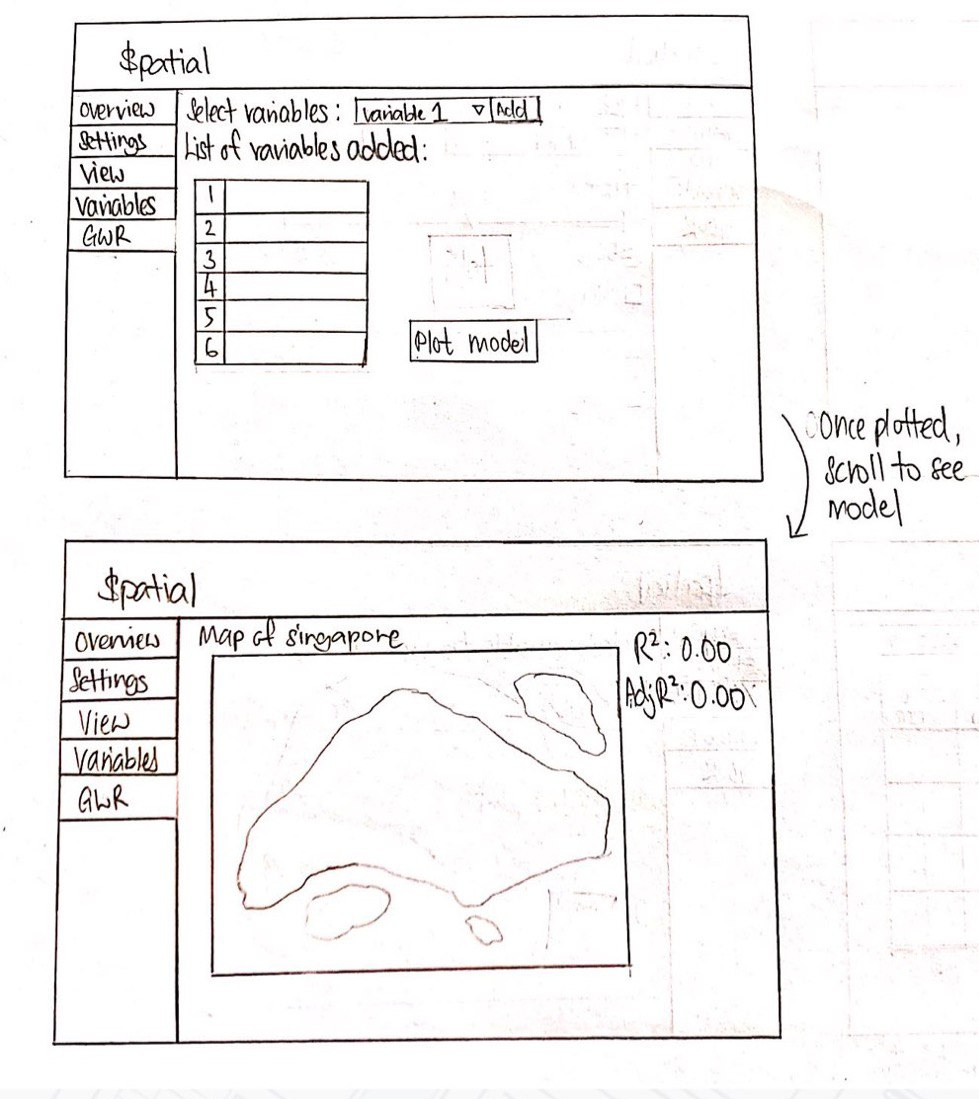 $patial
Overview
Settings
View
Variables
GWR
Select variables: Variable 1 ▽ Add
List of variables added:
1
2
3
4
5
6
Plot model
Once plotted,
scroll to see
model
$patial
Overview
Settings
View
Variables
GWR
Map of Singapore
R²: 0.00
Adj R²: 0.00